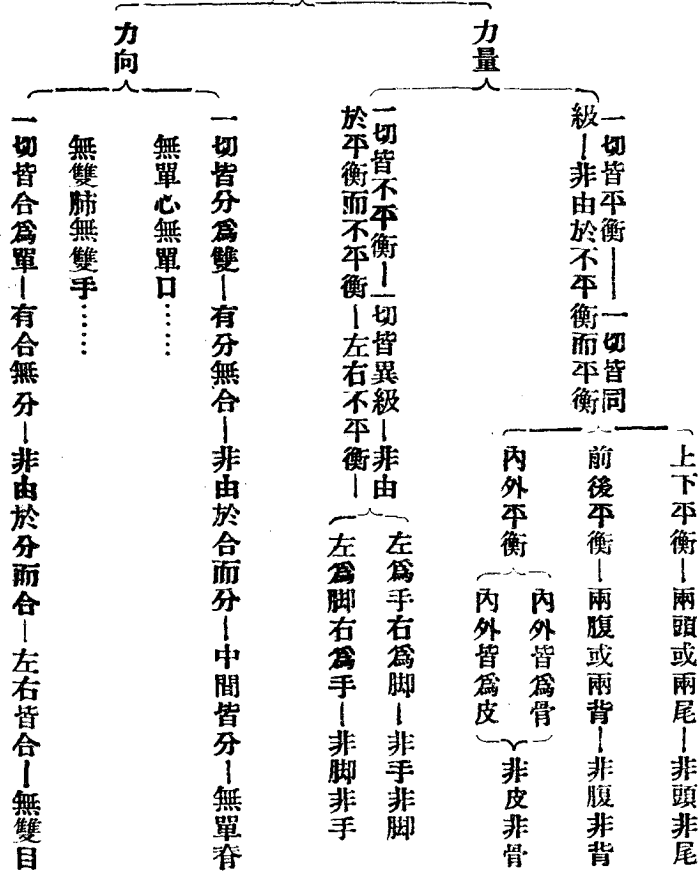 力量
一切皆平衡——一切皆同
級—非由於不平衡而平衡
上下平衡—兩頭或兩尾—非頭非尾
前後平衡—兩腹或兩背—非腹非背
內外平衡
內外皆爲骨
內外皆爲皮
非皮非骨
一切皆不平衡—一切皆異級—非由
於平衡而不平衡—左右不平衡—
左爲手右爲脚—非手非脚
左爲脚右爲手—非脚非手
力向
一切皆分爲雙—有分無合—非由於合而分—中間皆分—無單脊
無單心無單口……
一切皆合爲單—有合無分—非由於分而合—左右皆合—無雙目
無雙肺無雙手……